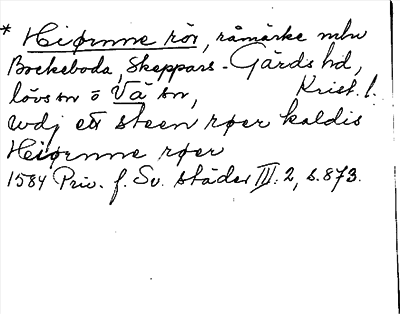 * Hiørnne rör, råmärke mln
Bockeboda, Skeppars-Gärds hd,
lövs sn o Vä sn, Krist. l.
wdj ett steen røer kaldis
Heiørnne røer
1584 Priv. f. Sv. städer III:2, s. 873.